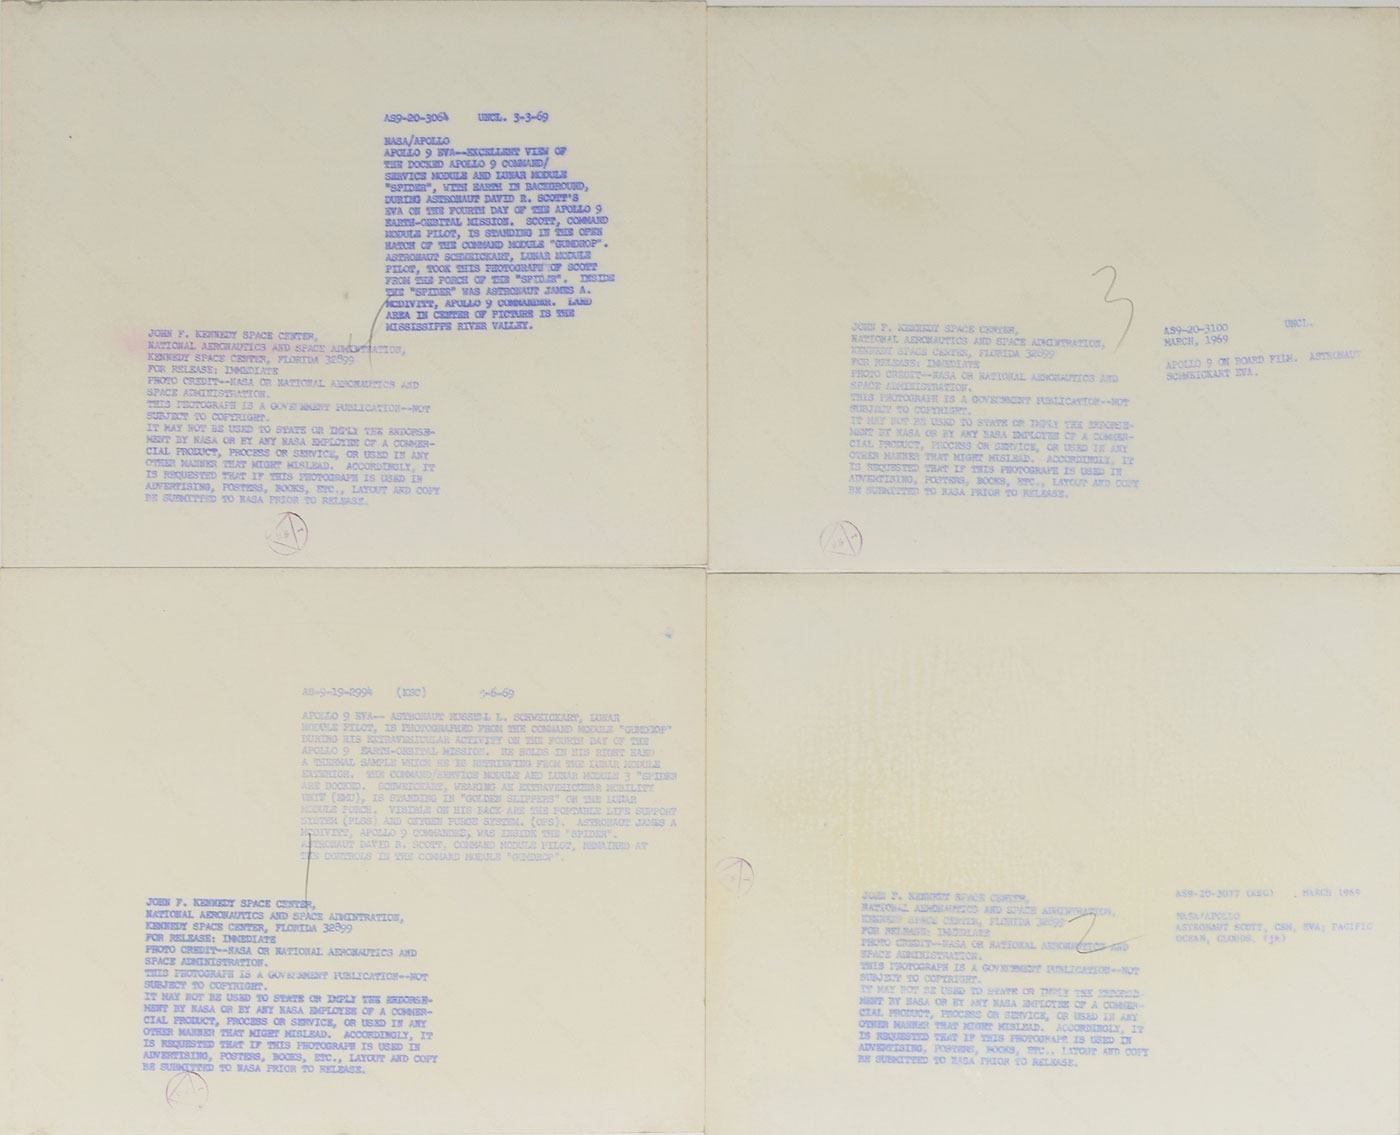 AS9-20-3064 UNCL. 3-3-69
NASA/APOLLO
APOLLO 9 EVA--EXCELLENT VIEW OF
THE DOCKED APOLLO 9 COMMAND/
SERVICE MODULE AND LUNAR MODULE
"SPIDER", WITH EARTH IN BACKGROUND,
DURING ASTRONAUT DAVID R. SCOTT'S
EVA ON THE FOURTH DAY OF THE APOLLO 9
EARTH-ORBITAL MISSION. SCOTT, COMMAND
MODULE PILOT, IS STANDING IN THE OPEN
HATCH OF THE COMMAND MODULE "GUMDROP".
ASTRONAUT SCHWEICKART, LUNAR MODULE
PILOT, TOOK THIS PHOTOGRAPH OF SCOTT
FROM THE PORCH OF THE "SPIDER". INSIDE
THE "SPIDER" WAS ASTRONAUT JAMES A.
MCDIVITT, APOLLO 9 COMMANDER. LAND
AREA IN CENTER OF PICTURE IS THE
MISSISSIPPI RIVER VALLEY.
JOHN F. KENNEDY SPACE CENTER,
NATIONAL AERONAUTICS AND SPACE ADMINTRATION,
KENNEDY SPACE CENTER, FLORIDA 32899
FOR RELEASE: IMMEDIATE
PHOTO CREDIT--NASA OR NATIONAL AERONAUTICS AND
SPACE ADMINISTRATION.
THIS PHOTOGRAPH IS A GOVERNMENT PUBLICATION--NOT
SUBJECT TO COPYRIGHT.
IT MAY NOT BE USED TO STATE OR IMPLY THE ENDORSE-
MENT BY NASA OR BY ANY NASA EMPLOYEE OF A COMMER-
CIAL PRODUCT, PROCESS OR SERVICE, OR USED IN ANY
OTHER MANNER THAT MIGHT MISLEAD. ACCORDINGLY, IT
IS REQUESTED THAT IF THIS PHOTOGRAPH IS USED IN
ADVERTISING, POSTERS, BOOKS, ETC., LAYOUT AND COPY
BE SUBMITTED TO NASA PRIOR TO RELEASE.
3
JOHN F. KENNEDY SPACE CENTER,
NATIONAL AERONAUTICS AND SPACE ADMINTRATION,
KENNEDY SPACE CENTER, FLORIDA 32899
FOR RELEASE: IMMEDIATE
PHOTO CREDIT--NASA OR NATIONAL AERONAUTICS AND
SPACE ADMINISTRATION.
THIS PHOTOGRAPH IS A GOVERNMENT PUBLICATION--NOT
SUBJECT TO COPYRIGHT.
IT MAY NOT BE USED TO STATE OR IMPLY THE ENDORSE-
MENT BY NASA OR BY ANY NASA EMPLOYEE OF A COMMER-
CIAL PRODUCT, PROCESS OR SERVICE, OR USED IN ANY
OTHER MANNER THAT MIGHT MISLEAD. ACCORDINGLY, IT
IS REQUESTED THAT IF THIS PHOTOGRAPH IS USED IN
ADVERTISING, POSTERS, BOOKS, ETC., LAYOUT AND COPY
BE SUBMITTED TO NASA PRIOR TO RELEASE.
AS9-20-3100 UNCL.
MARCH, 1969
APOLLO 9 ON BOARD FILM. ASTRONAUT
SCHWEICKART EVA.
AS-9-19-2994 (KSC) -6-69
APOLLO 9 EVA-- ASTRONAUT RUSSELL L. SCHWEICKART, LUNAR
MODULE PILOT, IS PHOTOGRAPHED FROM THE COMMAND MODULE "GUMDROP"
DURING HIS EXTRAVEHICULAR ACTIVITY ON THE FOURTH DAY OF THE
APOLLO 9 EARTH-ORBITAL MISSION. HE HOLDS IN HIS RIGHT HAND
A THERMAL SAMPLE WHICH HE IS RETRIEVING FROM THE LUNAR MODULE
EXTERIOR. THE COMMAND/SERVICE MODULE AND LUNAR MODULE 3 "SPIDER
ARE DOCKED. SCHWEICKART, WEARING AN EXTRAVEHICULAR MOBILITY
UNIT (EMU), IS STANDING IN "GOLDEN SLIPPERS" ON THE LUNAR
MODULE PORCH. VISIBLE ON HIS BACK ARE THE PORTABLE LIFE SUPPORT
SYSTEM (PLSS) AND OXYGEN PURGE SYSTEM. (OPS). ASTRONAUT JAMES A
MCDIVITT, APOLLO 9 COMMANDER, WAS INSIDE THE "SPIDER".
ASTRONAUT DAVID R. SCOTT, COMMAND MODULE PILOT, REMAINED AT
THE CONTROLS IN THE COMMAND MODULE "GUMDROP".
JOHN F. KENNEDY SPACE CENTER,
NATIONAL AERONAUTICS AND SPACE ADMINTRATION,
KENNEDY SPACE CENTER, FLORIDA 32899
FOR RELEASE: IMMEDIATE
PHOTO CREDIT--NASA OR NATIONAL AERONAUTICS AND
SPACE ADMINISTRATION.
THIS PHOTOGRAPH IS A GOVERNMENT PUBLICATION--NOT
SUBJECT TO COPYRIGHT.
IT MAY NOT BE USED TO STATE OR IMPLY THE ENDORSE-
MENT BY NASA OR BY ANY NASA EMPLOYEE OF A COMMER-
CIAL PRODUCT, PROCESS OR SERVICE, OR USED IN ANY
OTHER MANNER THAT MIGHT MISLEAD. ACCORDINGLY, IT
IS REQUESTED THAT IF THIS PHOTOGRAPH IS USED IN
ADVERTISING, POSTERS, BOOKS, ETC., LAYOUT AND COPY
BE SUBMITTED TO NASA PRIOR TO RELEASE.
JOHN F. KENNEDY SPACE CENTER,
NATIONAL AERONAUTICS AND SPACE ADMINTRATION,
KENNEDY SPACE CENTER, FLORIDA 32899
FOR RELEASE: IMMEDIATE
PHOTO CREDIT--NASA OR NATIONAL AERONAUTICS AND
SPACE ADMINISTRATION.
THIS PHOTOGRAPH IS A GOVERNMENT PUBLICATION--NOT
SUBJECT TO COPYRIGHT.
IT MAY NOT BE USED TO STATE OR IMPLY THE ENDORSE-
MENT BY NASA OR BY ANY NASA EMPLOYEE OF A COMMER-
CIAL PRODUCT, PROCESS OR SERVICE, OR USED IN ANY
OTHER MANNER THAT MIGHT MISLEAD. ACCORDINGLY, IT
IS REQUESTED THAT IF THIS PHOTOGRAPH IS USED IN
ADVERTISING, POSTERS, BOOKS, ETC., LAYOUT AND COPY
BE SUBMITTED TO NASA PRIOR TO RELEASE.
2
AS9-20-3077 (NEG) MARCH 1969
NASA/APOLLO
ASTRONAUT SCOTT, CSM, EVA; PACIFIC
OCEAN, CLOUDS. (jk)